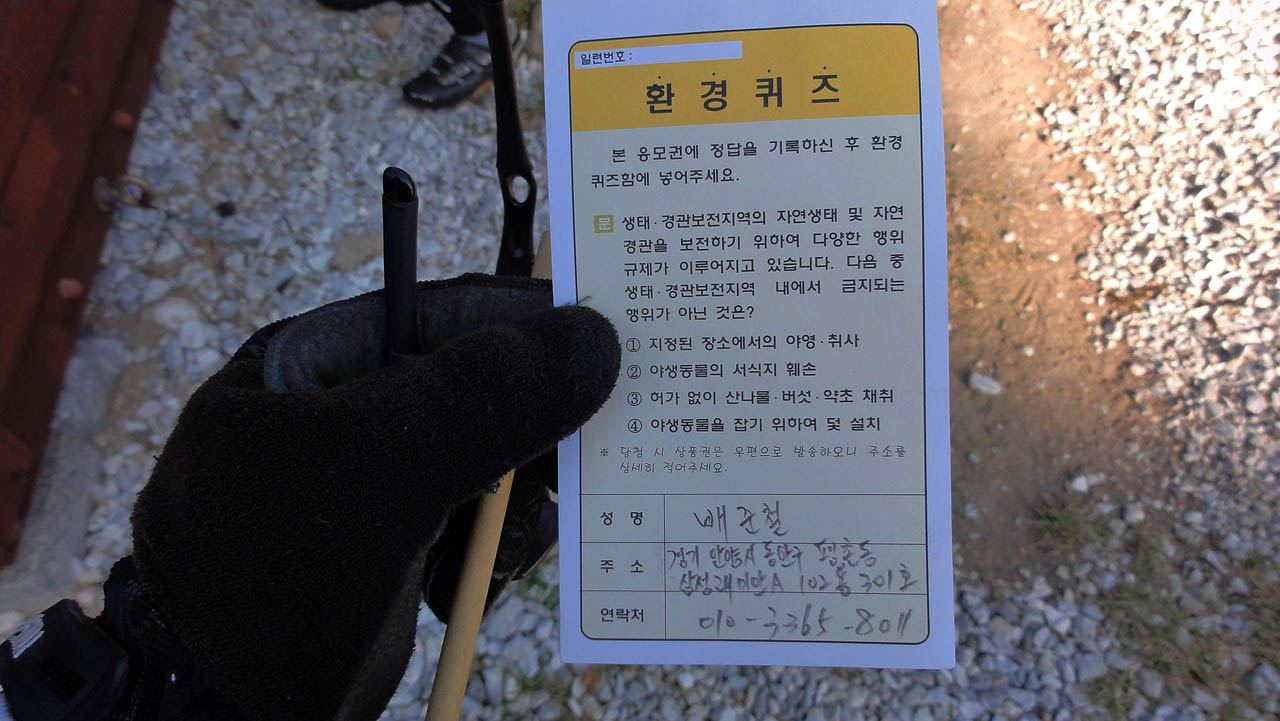 일련번호 :
환경퀴즈
본 응모권에 정답을 기록하신 후 환경
퀴즈함에 넣어주세요.
문 생태·경관보전지역의 자연생태 및 자연
경관을 보전하기 위하여 다양한 행위
규제가 이루어지고 있습니다. 다음 중
생태·경관보전지역 내에서 금지되는
행위가 아닌 것은?
① 지정된 장소에서의 야영·취사
② 야생동물의 서식지 훼손
③ 허가 없이 산나물·버섯·약초 채취
④ 야생동물을 잡기 위하여 덫 설치
※ 당첨 시 상품권은 우편으로 발송하오니 주소를
상세히 적어주세요.
성 명 배준철
주 소 경기 안양시 동안구 평촌동
삼성래미안A 102동 301호
연락처 010-3365-8011